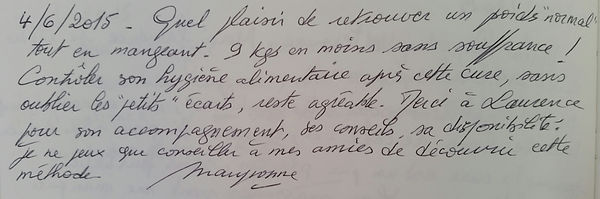 4/6/2015 - Quel plaisir de retrouver un poids "normal"
tout en mangeant. 9 kgs en moins sans souffrance !
Contrôler son hygiène alimentaire après cette cure, sans
oublier les "petits" écarts, reste agréable. Merci à Laurence
pour son accompagnement, ses conseils, sa disponibilité.
Je ne peux que conseiller à mes amies de découvrir cette
méthode
Maryvonne